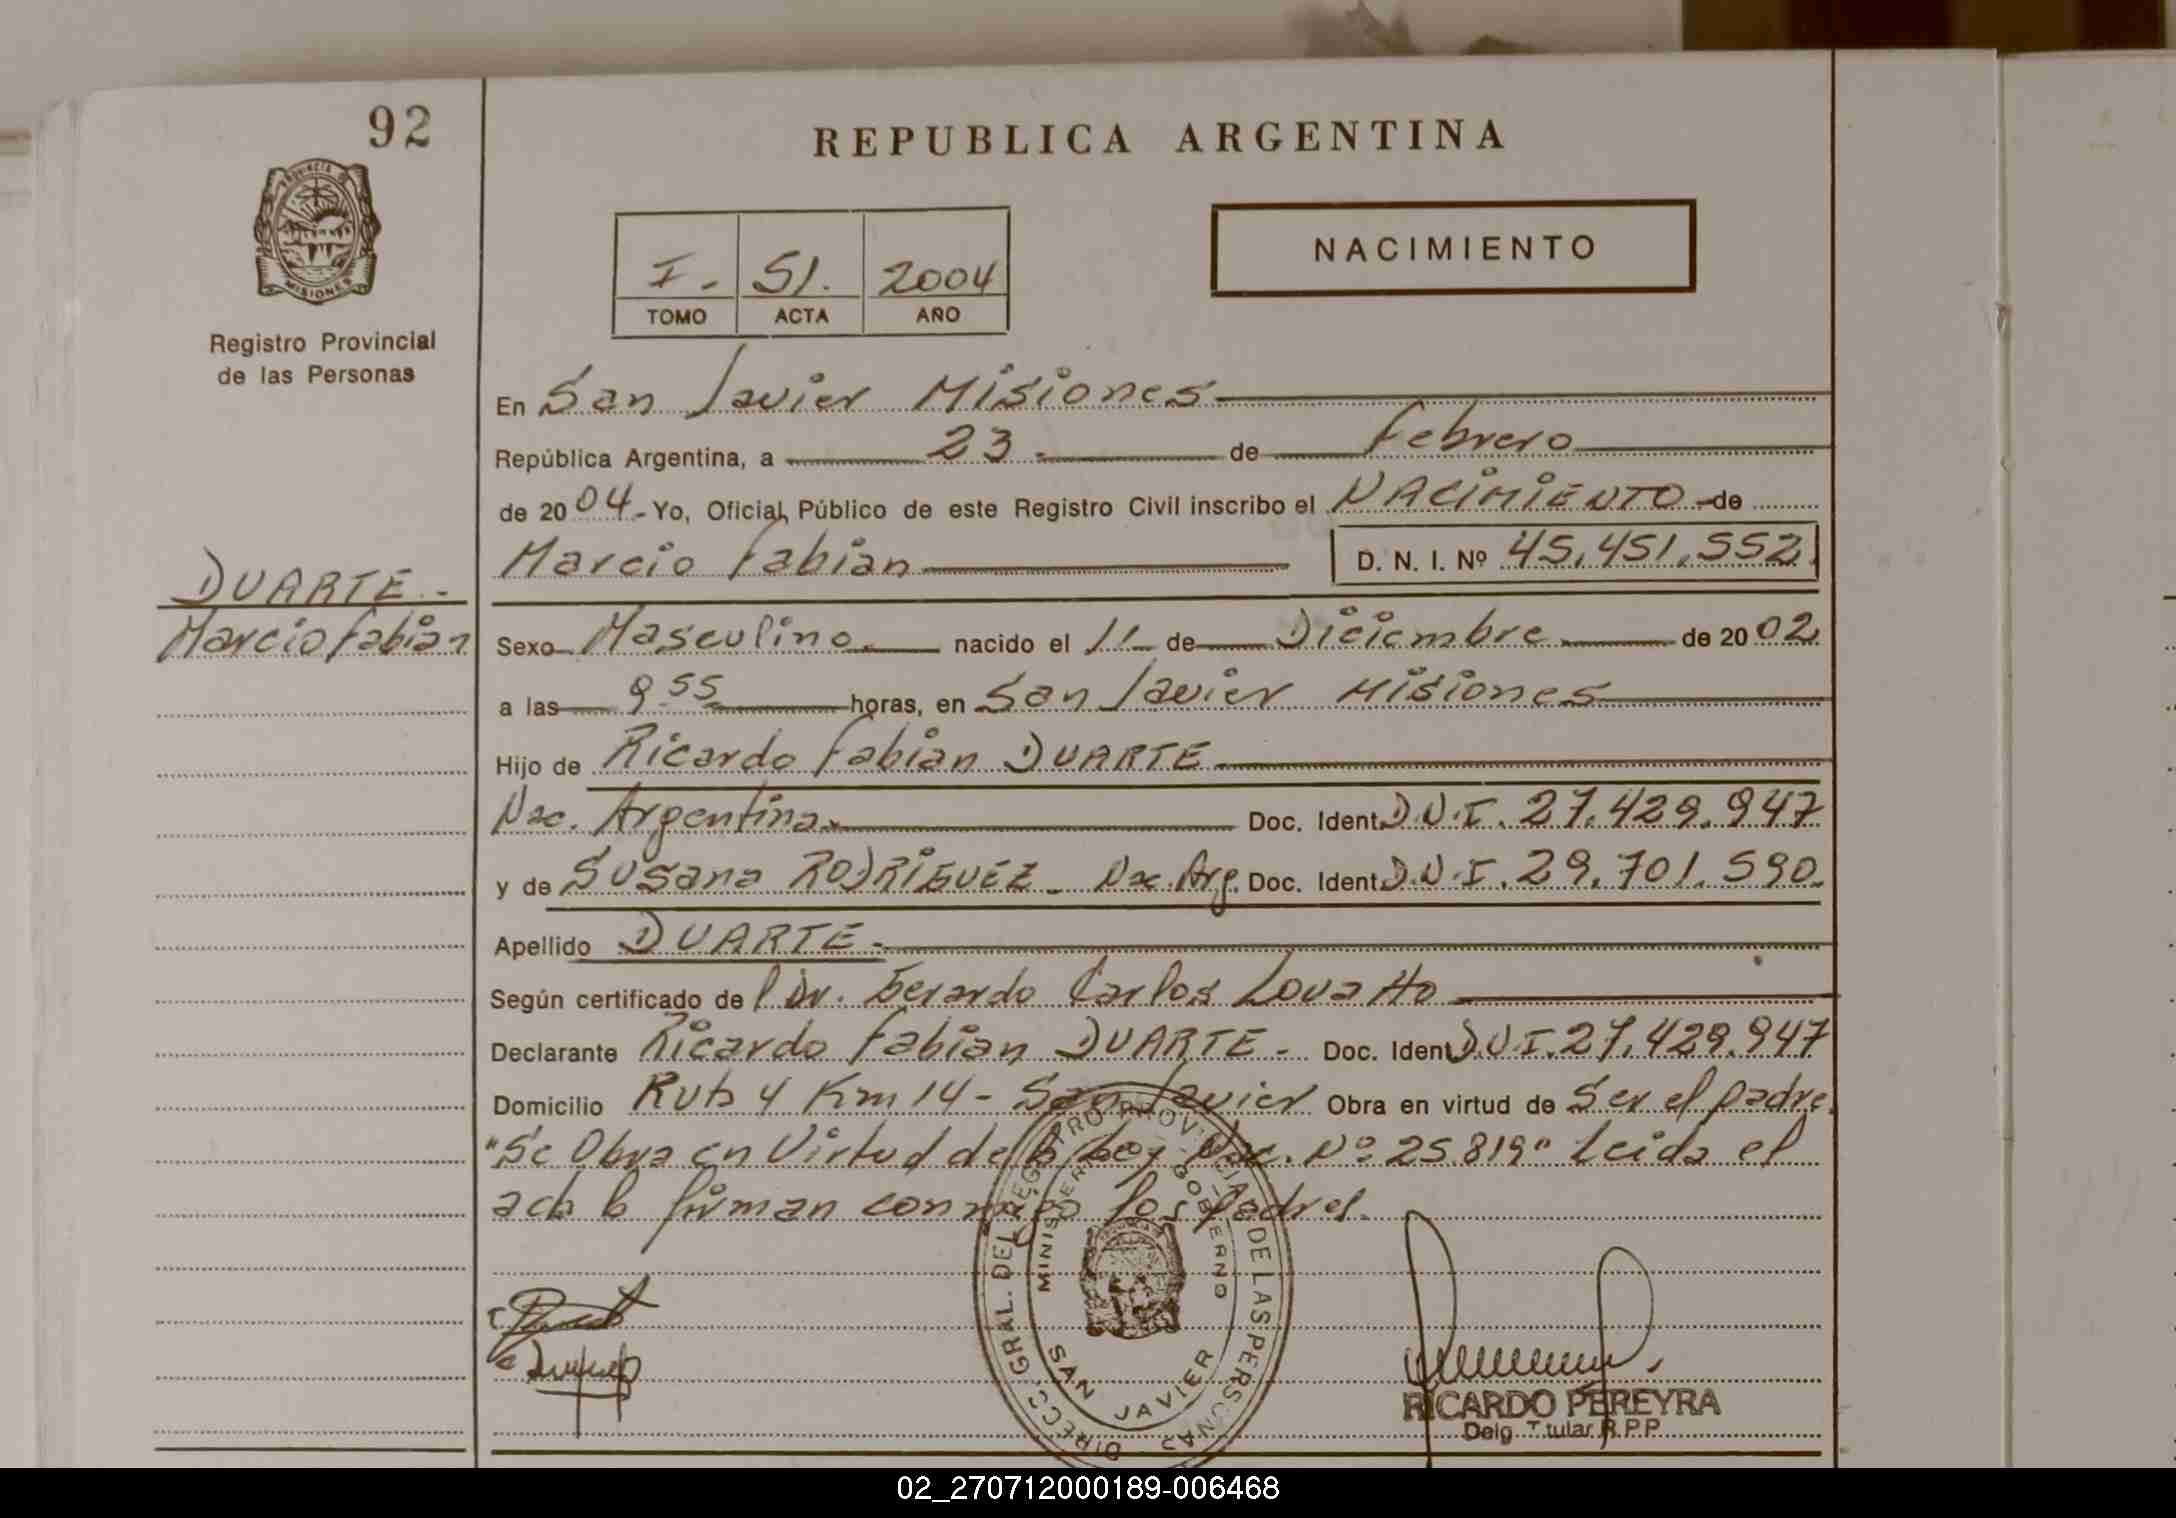 92
REPUBLICA ARGENTINA
PROVINCIA DE
MISIONES
Registro Provincial
de las Personas
NACIMIENTO
I. 51. 2004
TOMO ACTA AÑO
En San Javier Misiones
República Argentina, a 23 de Febrero
de 2004 Yo, Oficial Público de este Registro Civil inscribo el NACIMIENTO de
Marcio Fabian D. N. I. Nº 45.451.552
DUARTE
Marcio Fabian
Sexo Masculino nacido el 11 de Diciembre de 2002
a las 9 55 horas, en San Javier Misiones
Hijo de Ricardo Fabian DUARTE
Nac. Argentina Doc. Ident. D.N.I. 27.429.947
y de Susana RODRIGUEZ Nac. Arg. Doc. Ident. D.N.I. 29.701.590
Apellido DUARTE
Según certificado del Dr. Gerardo Carlos Lovatto
Declarante Ricardo Fabian DUARTE Doc. Ident. D.N.I. 27.429.947
Domicilio Ruta 4 Km 14 - San Javier Obra en virtud de Ser el padre
"Se Obra en Virtud de la Ley Nac. Nº 25.819" Leida el
acta la firman conmigo los padres.
DIRECC. GRAL. DEL REGISTRO PROVINCIAL DE LAS PERSONAS
MINISTERIO GOBIERNO
SAN JAVIER
RICARDO PEREYRA
Delg. Titular R.P.P.
02_270712000189-006468